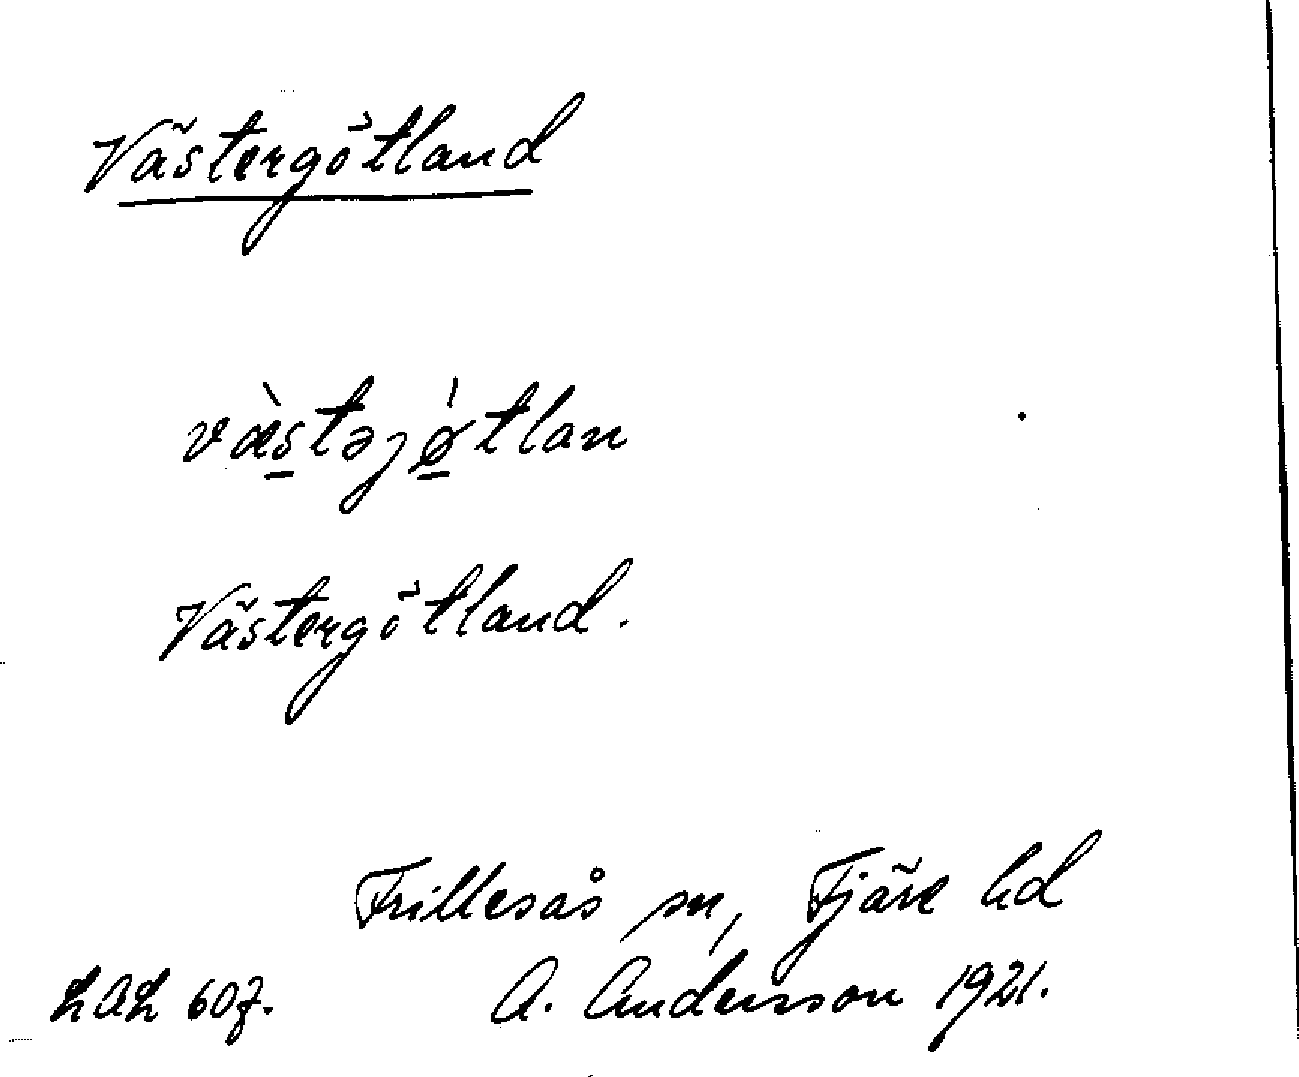 Västergötland
væ̀stəjǿtlan
Västergötland.
Frillesås sn, Fjäre hd
LAL 607. A. Andersson 1921.